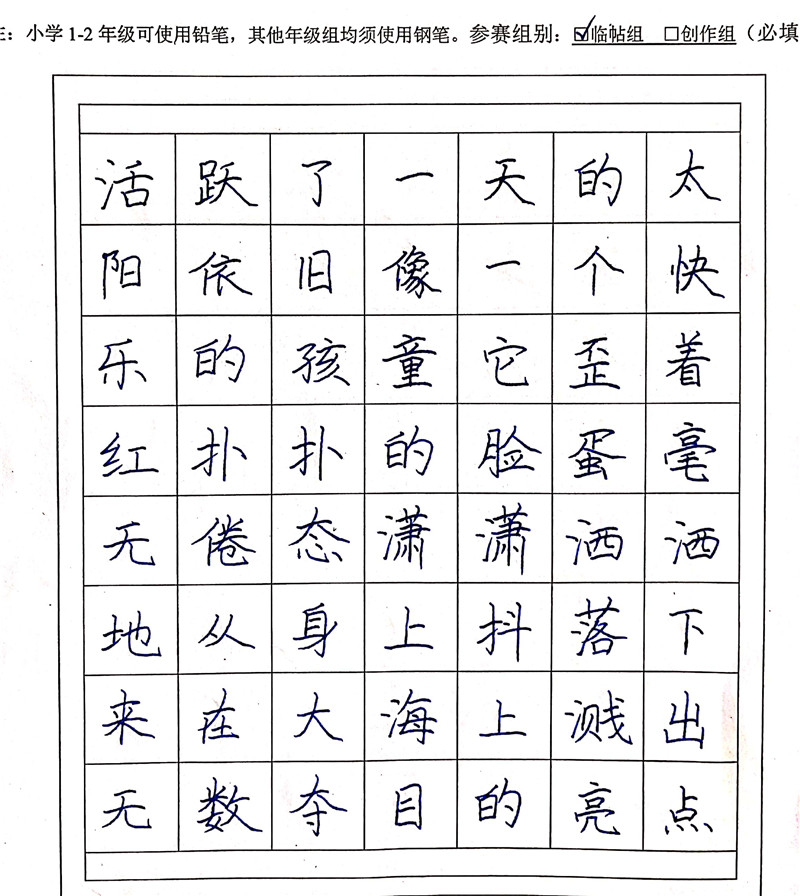 ：小学1-2年级可使用铅笔，其他年级组均须使用钢笔。参赛组别：☑临帖组 □创作组（必填
活跃了一天的太
阳依旧像一个快
乐的孩童它歪着
红扑扑的脸蛋毫
无倦态潇潇洒洒
地从身上抖落下
来在大海上溅出
无数夺目的亮点